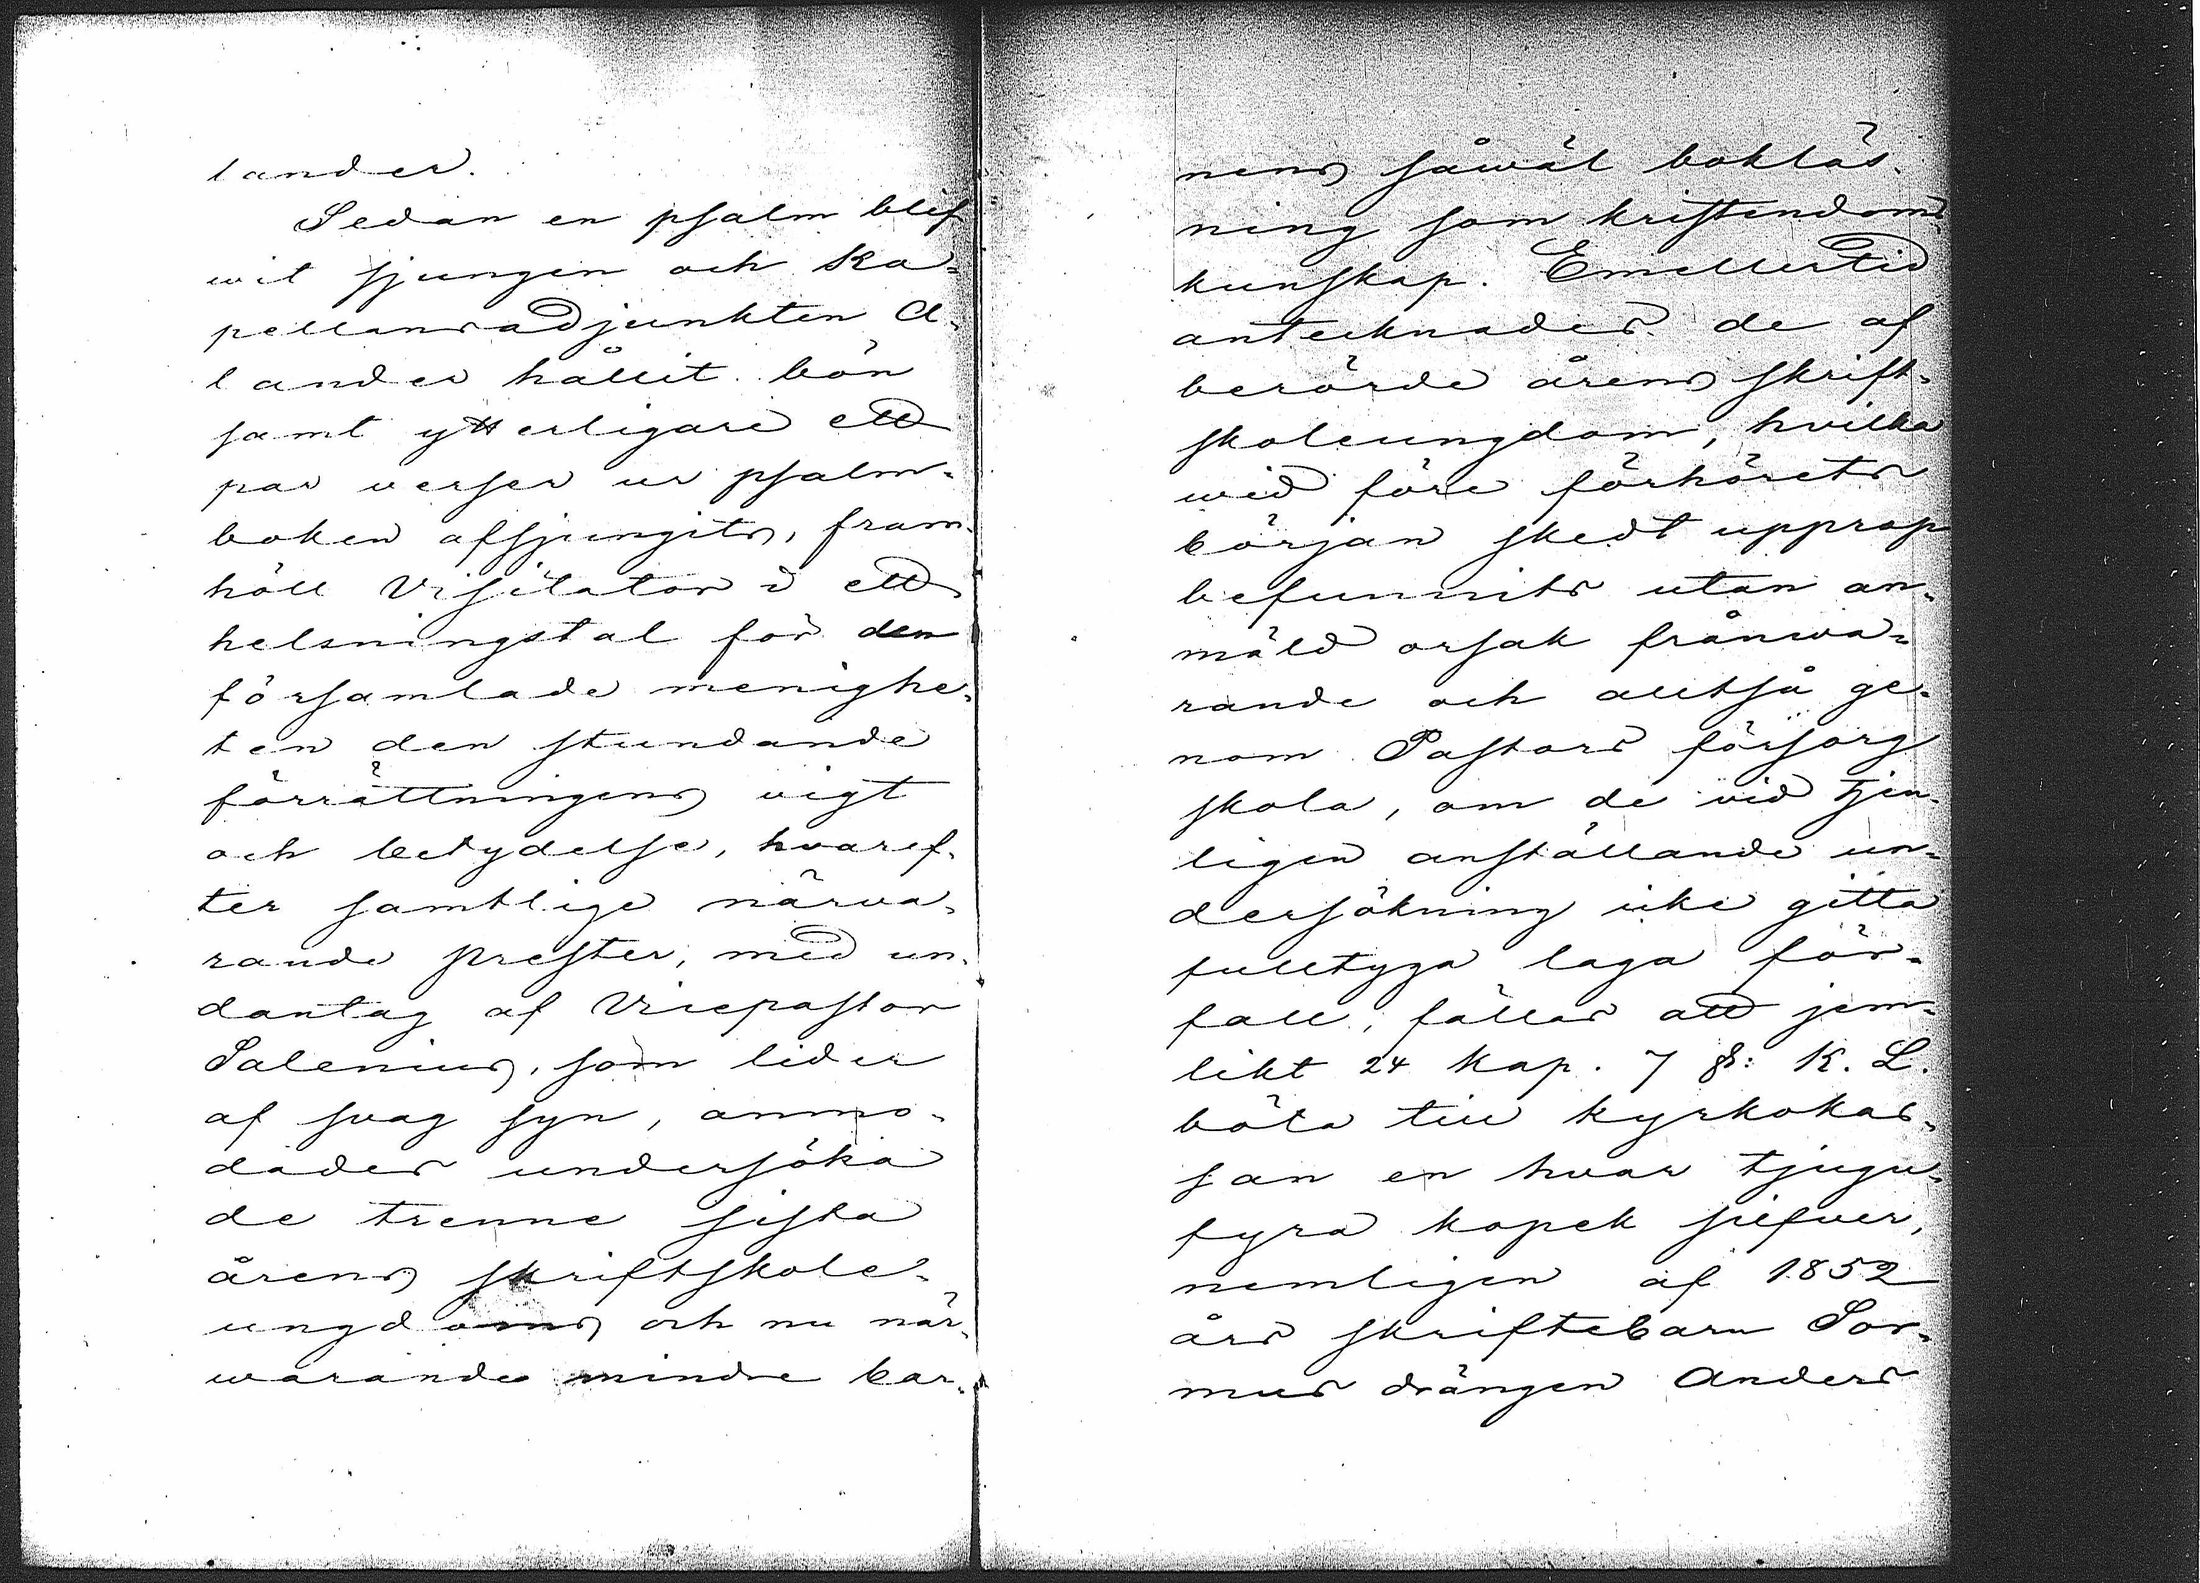 lander.
Sedan en psalm blif
wit sjungen och Ka-
pellansadjunkten A-
lander hållit bön
samt ytterligare ett
par verser ur psalm-
boken afsjungits, fram-
höll Visitator i ett
helsningstal för den
församlade menighe-
ten den stundande
förrättningens vigt
och betydelse, hvaref-
ter samtlige närva-
rande prester, med un-
dantag af Vicepastor
Salenius, som lider
af svag syn, anmo-
dades undersöka
de trenne sista
årens skriftskole-
ungdoms och nu när-
warande mindre bar-
nens såwäl bokläs-
ning som kristendoms-
kunskap. Emellertid
antecknades de af
berörde årens skrift-
skoleungdom, hvilka
wid före förhörets
början skedt upprop
befunnits utan an-
mäld orsak frånwa-
rande och alltså ge-
nom Pastors försorg
skola, om de vid tjen-
ligen anställande un-
dersökning icke gitta
fulltyga laga för-
fall, fällas att jem-
likt 24 Kap. 7 §: K. L.
böta till kyrkokas-
san en hvar tjugu-
fyra kopek silfver,
nemligen af 1852
års skriftebarn Sor-
mus drängen Anders